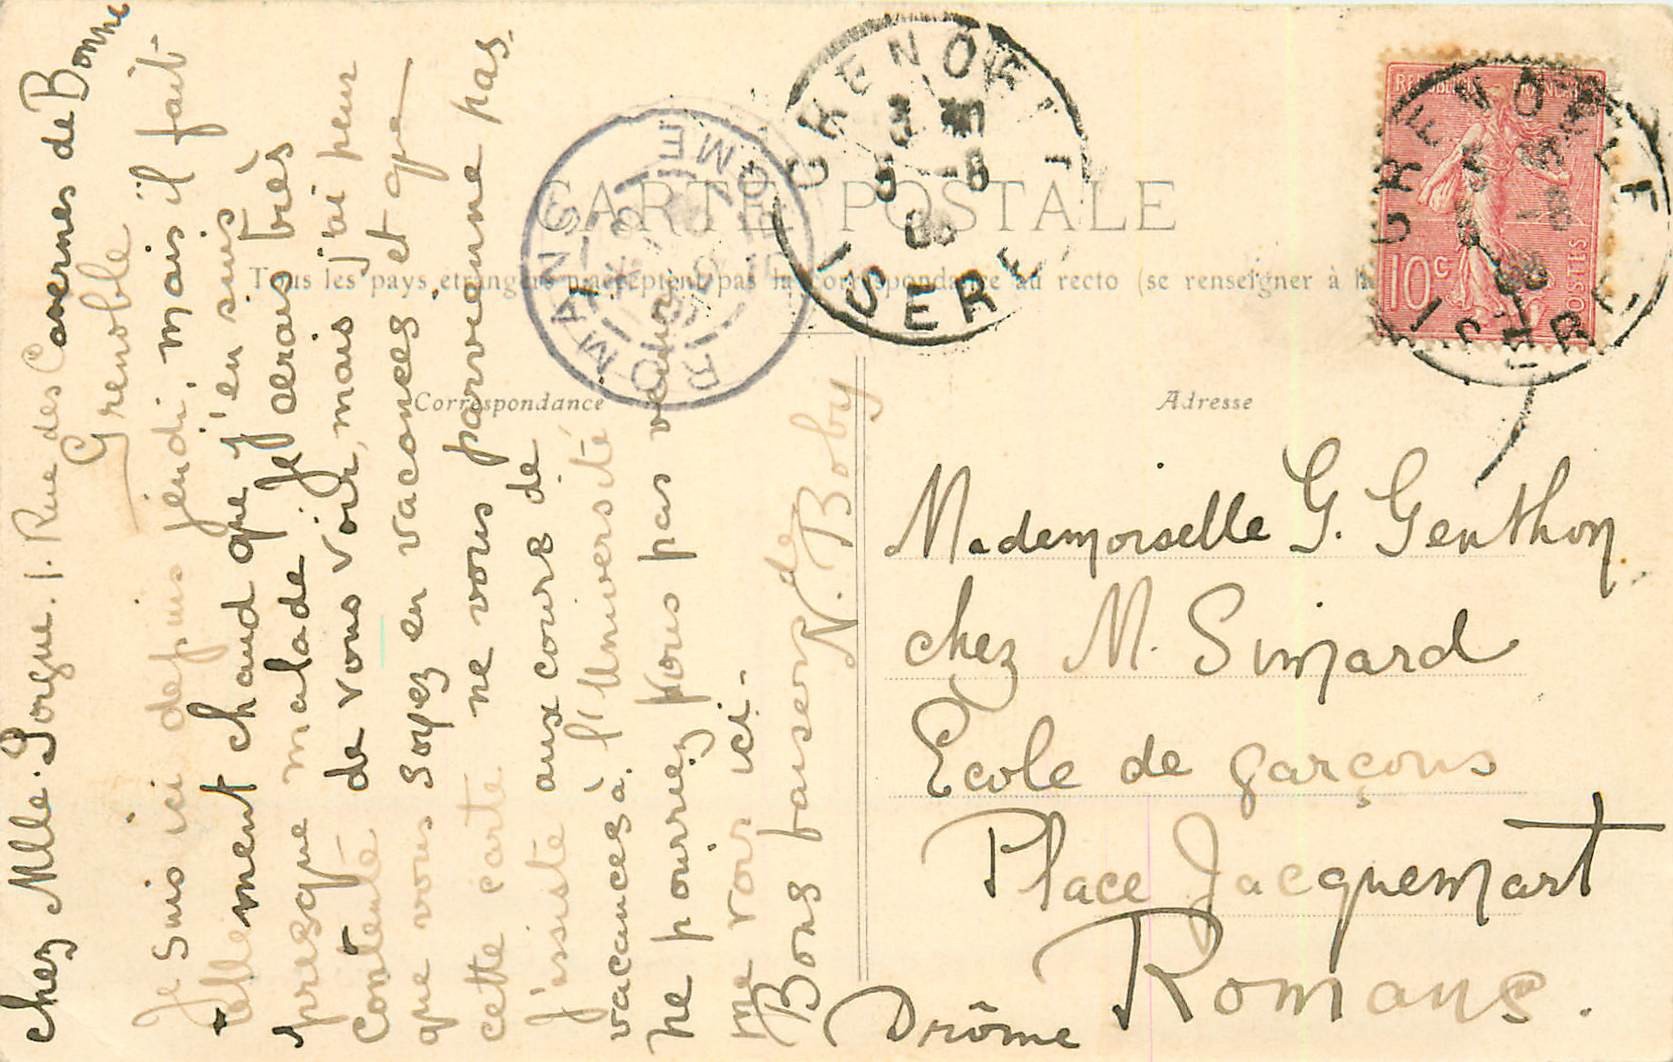 CARTE POSTALE
Tous les pays étrangers n'acceptent pas la correspondance au recto (se renseigner à la
Correspondance
Adresse
chez Mlle Porgue. 1. Rue des Casernes de Bonne
Grenoble
Je suis ici depuis jeudi, mais il fait
tellement chaud que j'en suis
presque malade Je serais très
contente de vous voir, mais j'ai peur
que vous soyez en vacances et que
cette carte ne vous parvienne pas.
J'assiste aux cours de
vacances à l'Université
ne pourriez vous pas venir
me voir ici.
Bons baisers de
N. Boby
Mademoiselle G. Genthon
chez M. Simard
Ecole de garçons
Place Jacquemart
Romans.
Drôme
GRENOBLE
ISERE
ROMANS
DROME
REPUBLIQUE FRANCAISE
10c
POSTES
GRENOBLE
ISERE